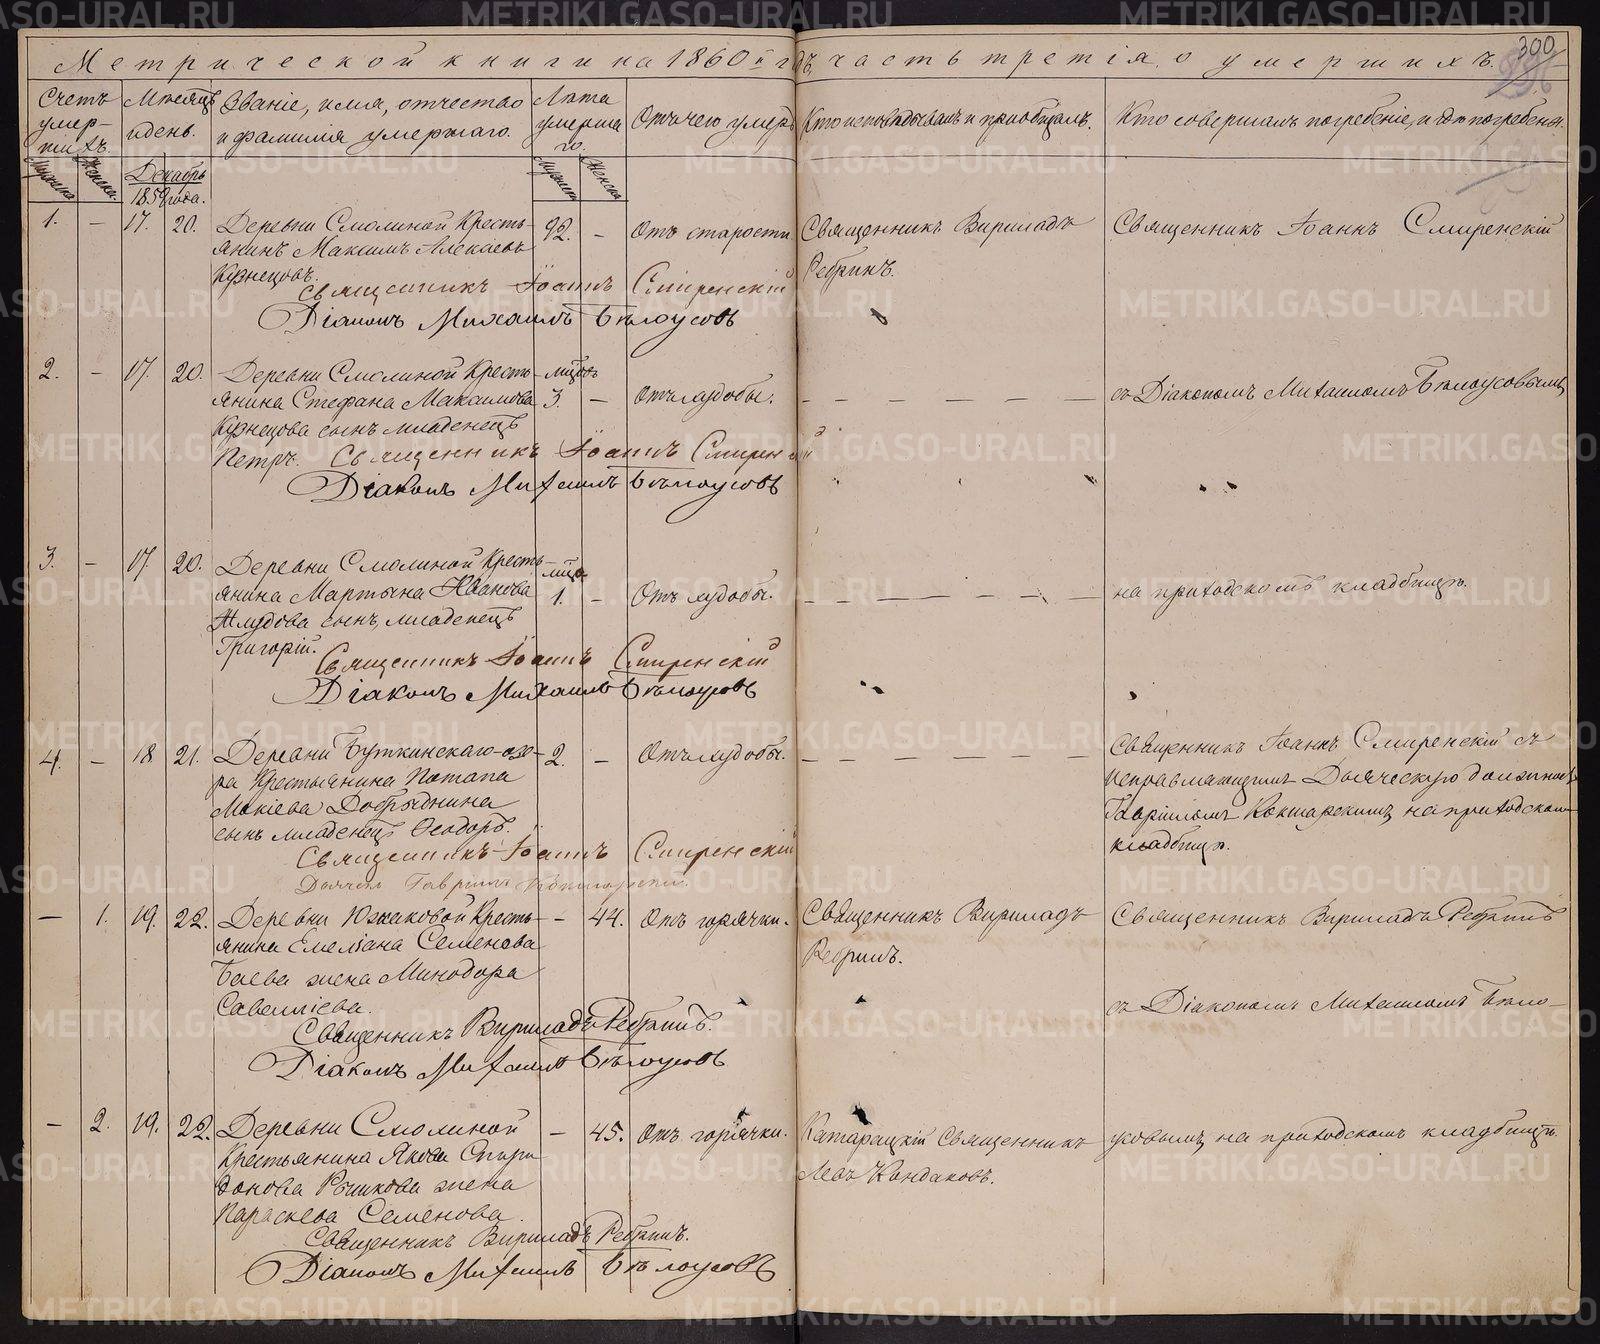 Метрической книги на 1860й годъ, часть третія, о умершихъ.
300
Счетъ умер-шихъ.
Мѣсяцъ и день.
Званіе, имя, отчество и фамилія умершаго.
Лѣта умершаго.
Отъ чего умеръ
Кто исповѣдывалъ и пріобщалъ.
Кто совершалъ погребеніе, и гдѣ погребены.
Мужеска
Женска.
Декабрь
1859 года.
Мужеска
Женска
1. — 17. 20. Деревни Смолиной Кресть- 92. — Отъ старости Священникъ Вириладъ Священникъ Іоаннъ Смиренскій
янинъ Максимъ
Кузнецовъ. Ребринъ.
Священникъ Іоаннъ Смиренскій
Діаконъ Михаилъ Бѣлоусовъ
2. — 17. 20. Деревни Смолиной Кресть- мѣсцовъ
янина Стефана Максимова 3. — Отъ худобы. — — — — — — съ Діакономъ Михаиломъ Бѣлоусовымъ,
Кузнецова сынъ младенецъ
Петръ. Священникъ Іоаннъ Смиренскій
Діаконъ Михаилъ Бѣлоусовъ
3. — 17. 20. Деревни Смолиной Кресть- мѣсца
янина Мартына Иванова 1. — Отъ худобы. — — — — — — на приходскомъ кладбищѣ.
Жлудова сынъ, младенецъ
Григорій.
Священникъ Іоаннъ Смиренскій
Діаконъ Михаилъ Бѣлоусовъ
4. — 18 21. Деревни Буткинскаго-озе- 2. — Отъ худобы. — — — — — — Священникъ Іоаннъ Смиренскій съ
ра Крестьянина Потапа исправляющимъ Дьяческую должность
Мокіева сынъ младенецъ Ѳеодоръ. Гавріиломъ Кокшарскимъ, на приходскомъ
кладбищѣ.
Священникъ Іоаннъ Смиренскій
Дьячекъ Гавріилъ Кокшарскій.
— 1. 19. 22. Деревни Южаковой Кресть- — 44. Отъ горячки. Священникъ Вириладъ Священникъ Вириладъ Ребринъ
янина Емеліана Семенова Ребринъ.
Баева жена Минодора
Савелліева. съ Діакономъ Михаиломъ Бѣло-
Священникъ Вириладъ Ребринъ.
Діаконъ Михаилъ Бѣлоусовъ
— 2. 19. 22. Деревни Смолиной — 45. Отъ горячки. Катарацкій Священникъ усовымъ, на приходскомъ кладбищѣ.
Крестьянина Якова Спири- Левъ Кандаковъ.
донова Рычкова жена
Параскева Семенова.
Священникъ Вириладъ Ребринъ.
Діаконъ Михаилъ Бѣлоусовъ
METRIKI.GASO-URAL.RU